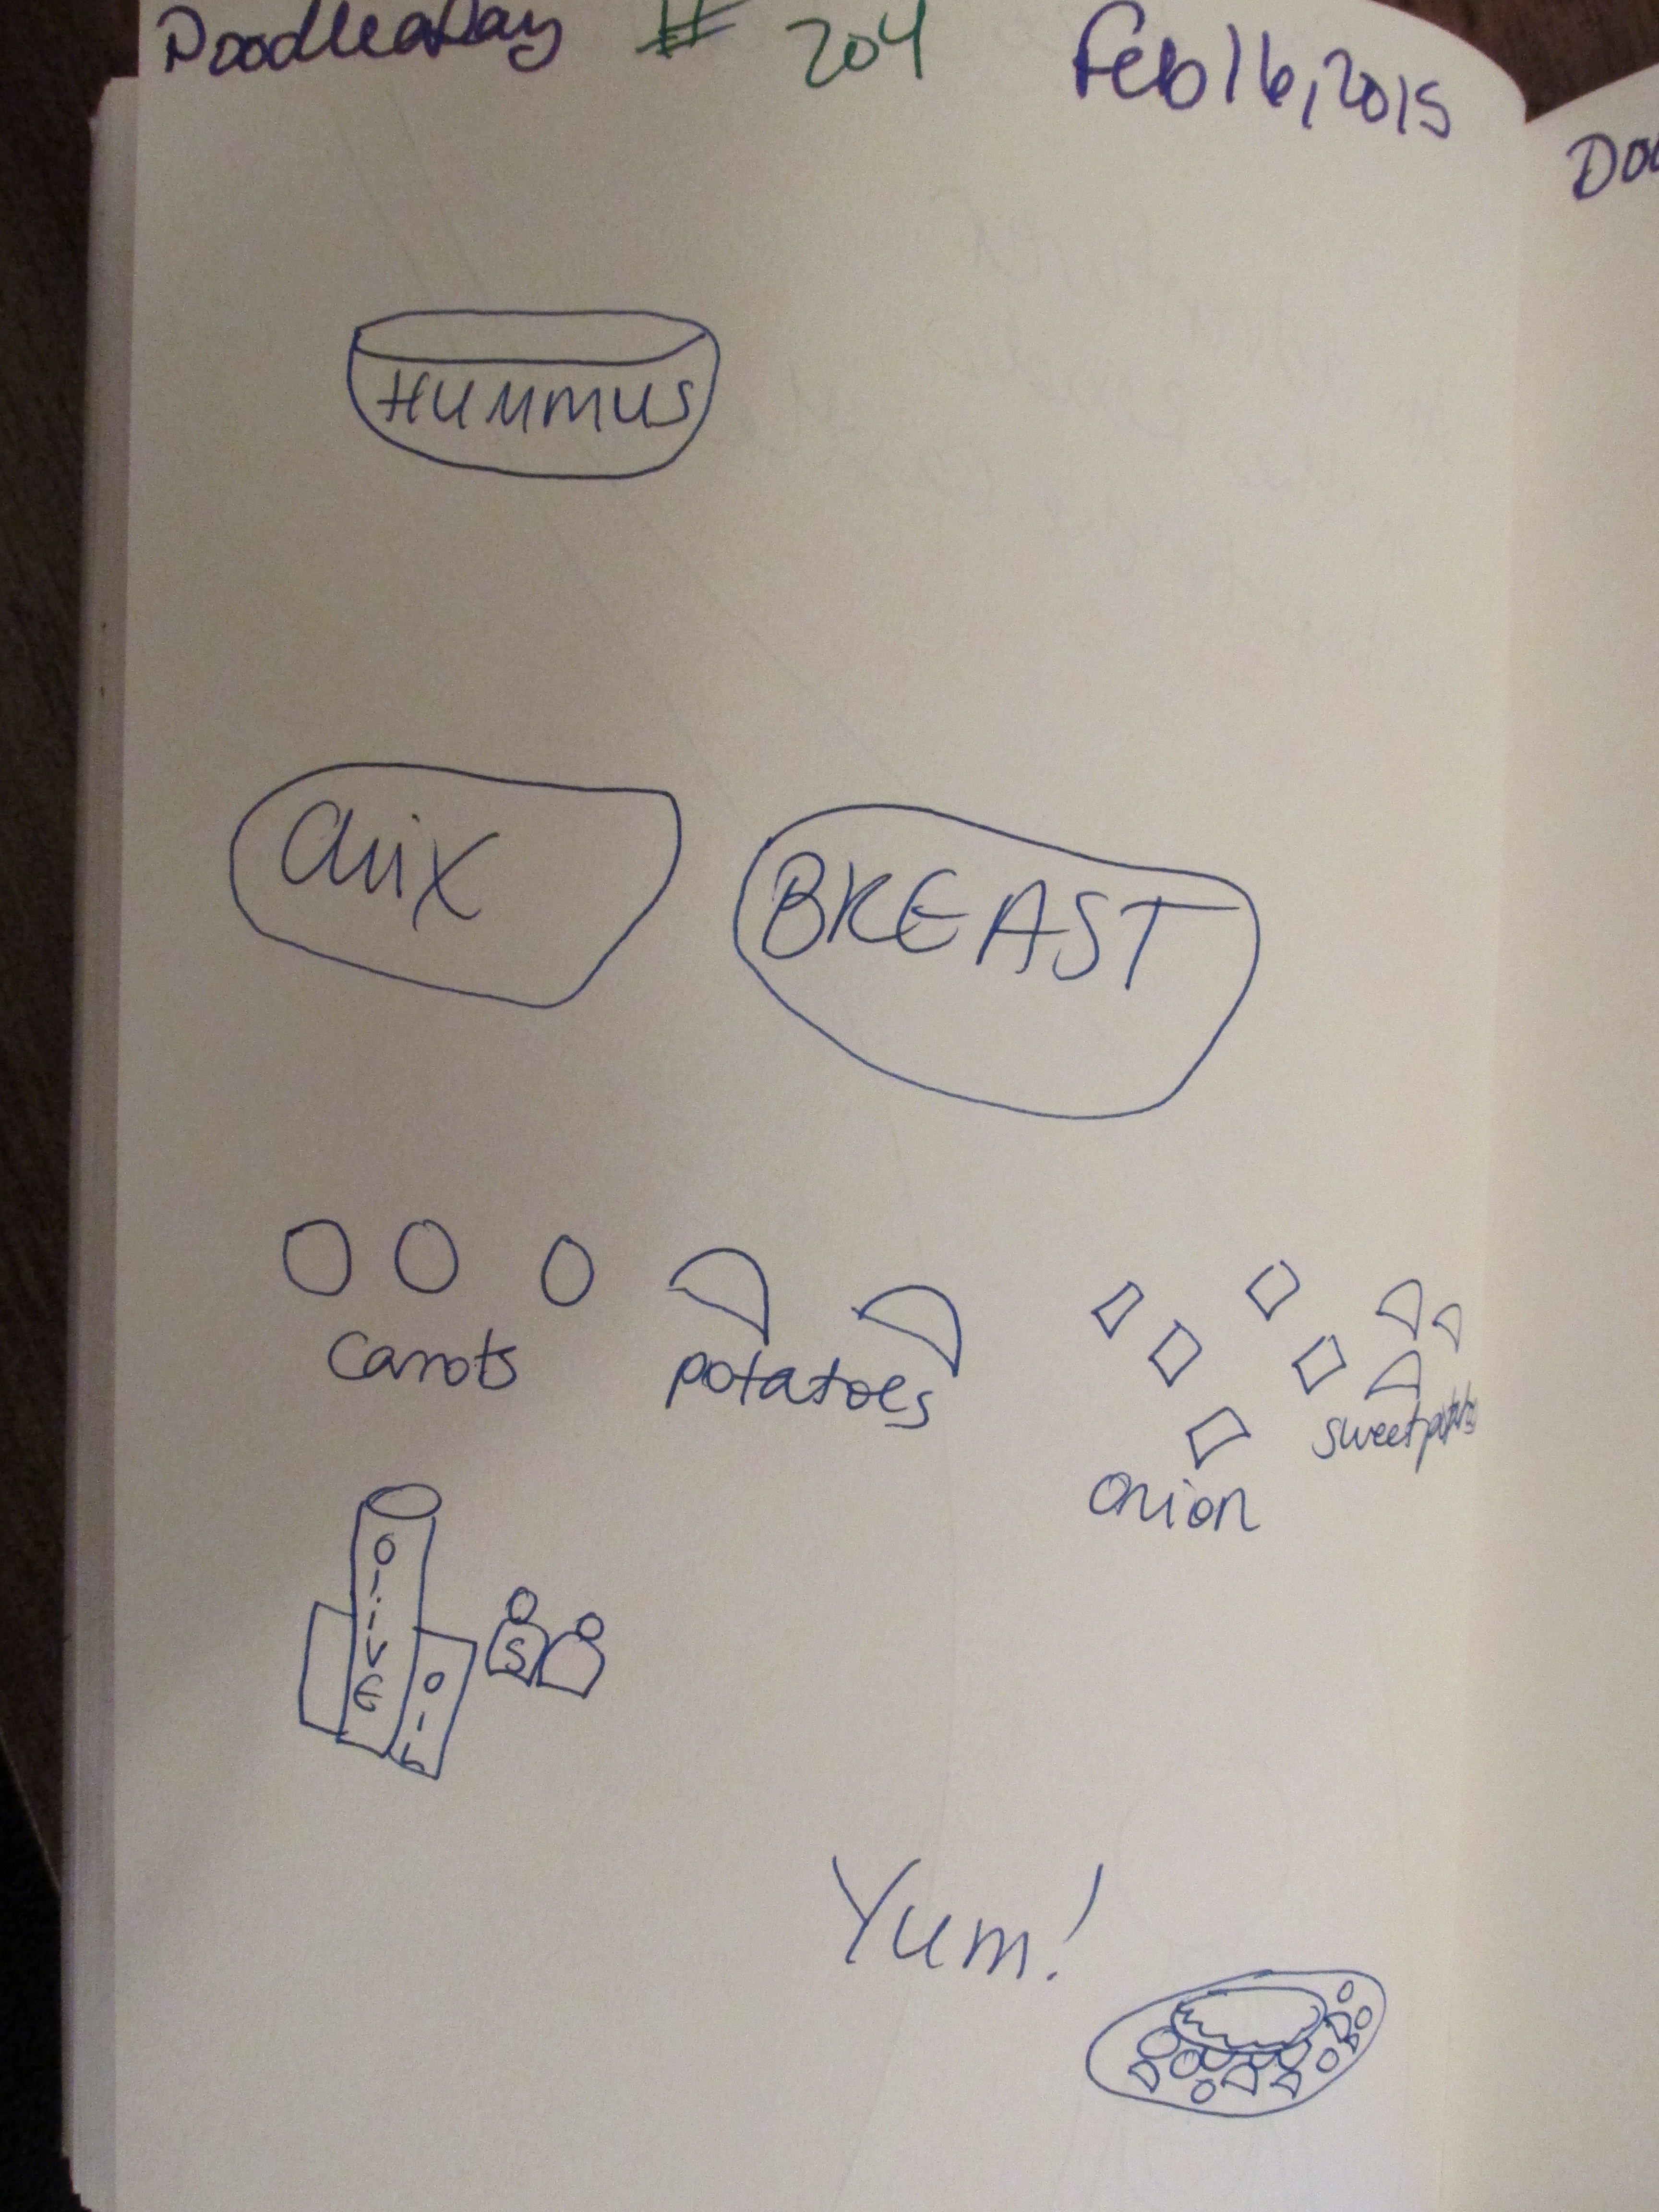 DoodleaDay # 204 Feb 16, 2015
Doo
HUMMUS
Chix
BREAST
carrots
potatoes
sweet potatoes
onion
OLIVE
OIL
S
Yum!